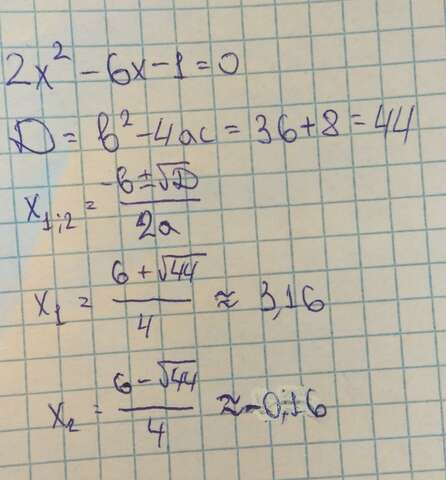 2x² - 6x - 1 = 0
D = b² - 4ac = 36 + 8 = 44
x₁;₂ = (-b ± √D) / 2a
x₁ = (6 + √44) / 4 ≈ 3,16
x₂ = (6 - √44) / 4 ≈ -0,16